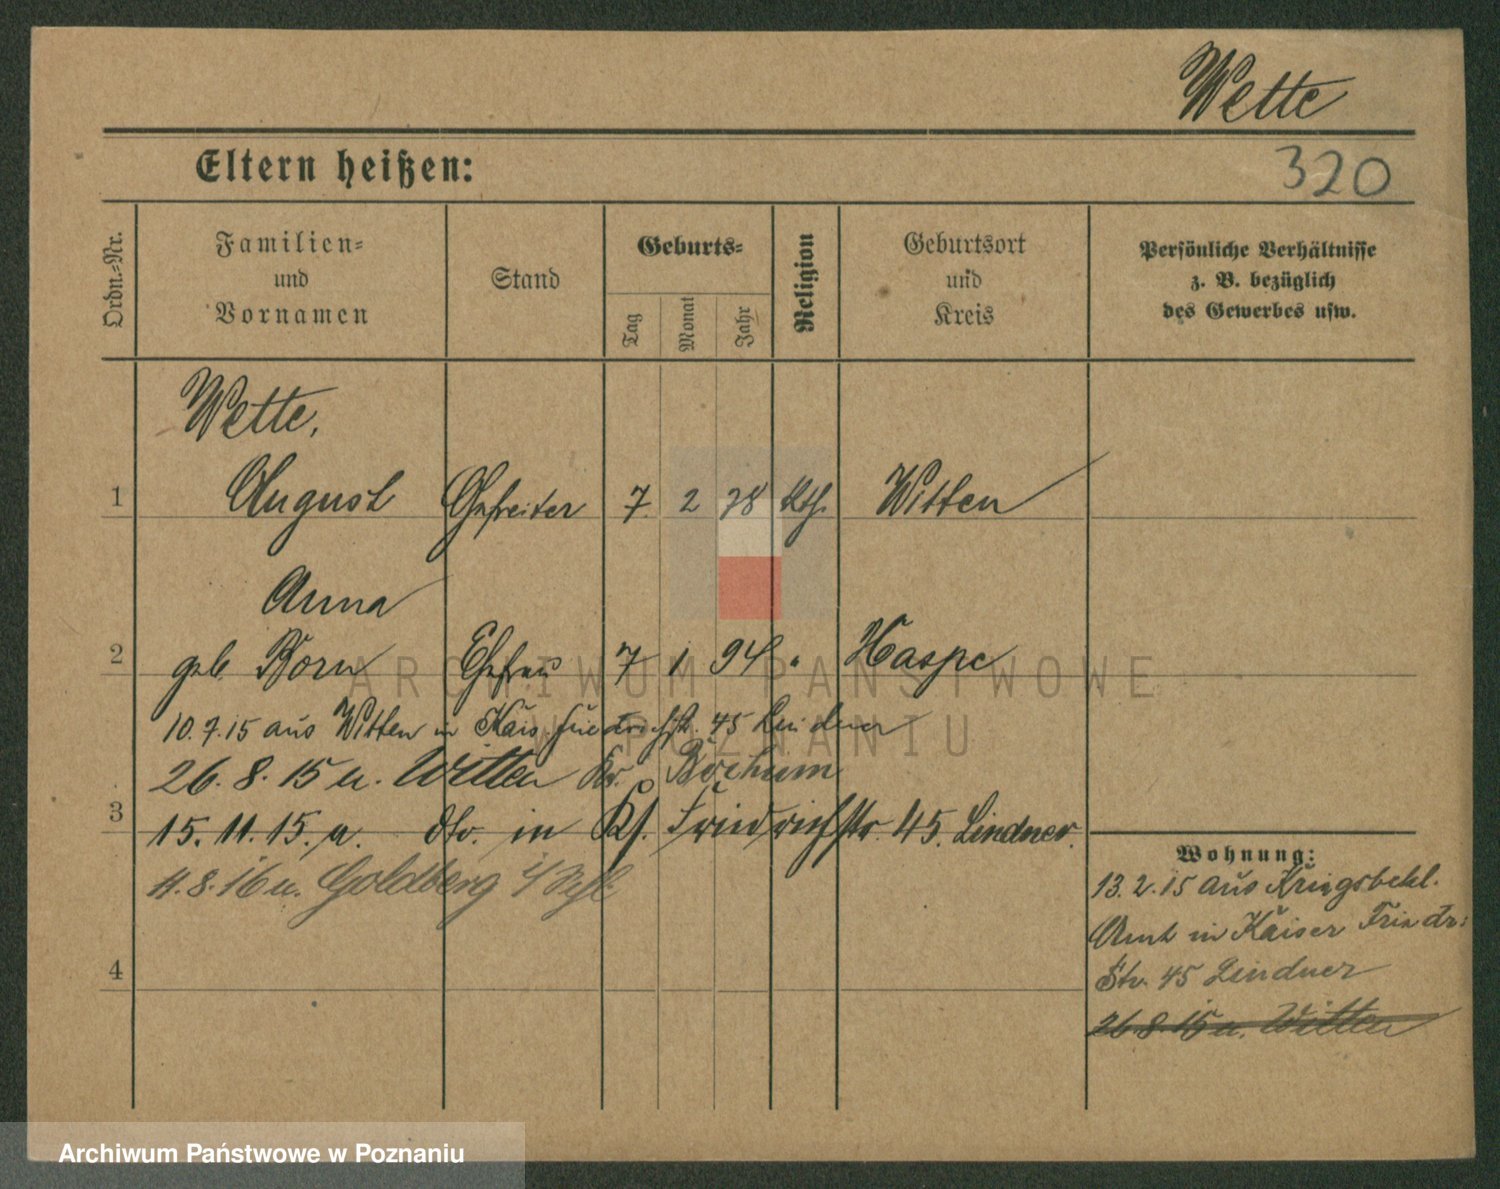 Wette
Eltern heißen:
320
Ordn.-Nr.
Familien-
und
Vornamen
Stand
Geburts-
Tag
Monat
Jahr
Religion
Geburtsort
und
Kreis
Persönliche Verhältnisse
z. B. bezüglich
des Gewerbes usw.
Wette,
1 August Gefreiter 7. 2 78 kth. Witten
Anna
2 geb. Born Ehefrau 7 1 94 " Haspe
10.7.15 aus Witten in Kais. Friedrichstr. 45 Lindner
26. 8. 15 n. Witten Kr. Bochum
3 15. 11. 15. a. dto. in Kf. Friedrichstr. 45. Lindner.
11. 8. 16 n. Goldberg
4
Wohnung:
13. 2. 15 aus Kriegsbekl.
Amt in Kaiser Friedr:
Str. 45 Lindner
26. 8. 15 n. Witten
ARCHIWUM PAŃSTWOWE
W POZNANIU
Archiwum Państwowe w Poznaniu